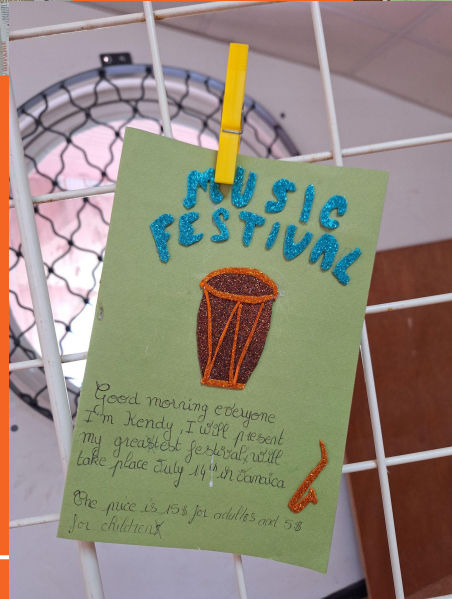 MUSIC
FESTIVAL
Good morning everyone
I'm Kendy, I will present
my greastest festival will
take place July 14th in Jamaica
One price is 15$ for adults and 5$
for children